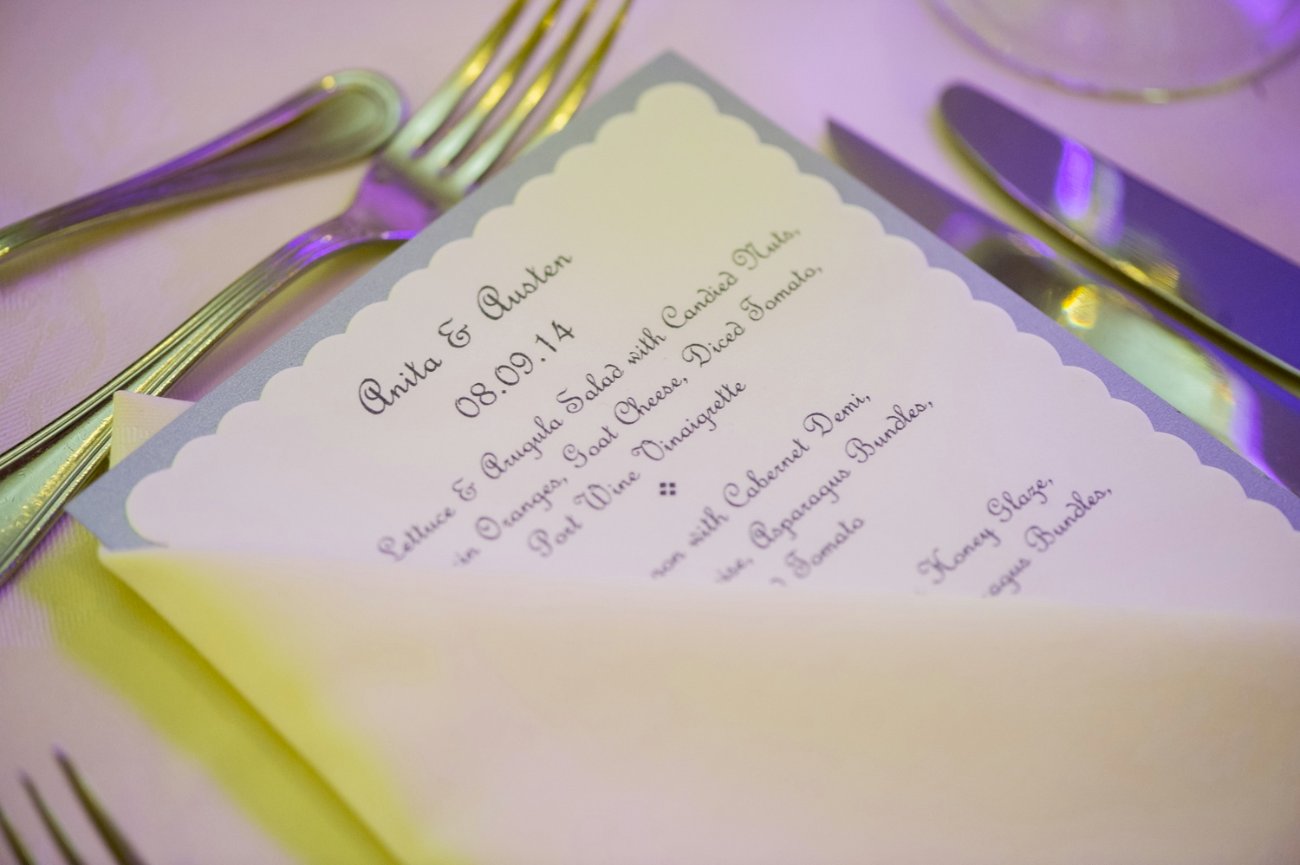 Anita & Austen
08.09.14
Lettuce & Arugula Salad with Candied Nuts,
in Oranges, Goat Cheese, Diced Tomato,
Port Wine Vinaigrette
with Cabernet Demi,
Asparagus Bundles,
Tomato
Honey Glaze,
Bundles,